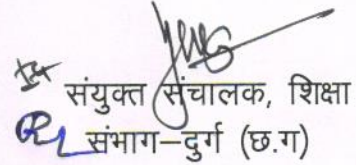 संयुक्त संचालक, शिक्षा
संभाग–दुर्ग (छ.ग)